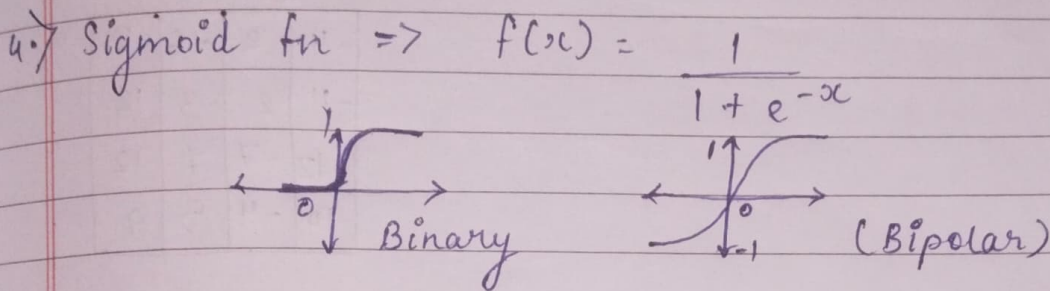 4.) Sigmoid fn => f(x) = 1 / 1 + e^-x
1 0 Binary
1 0 -1 (Bipolar)